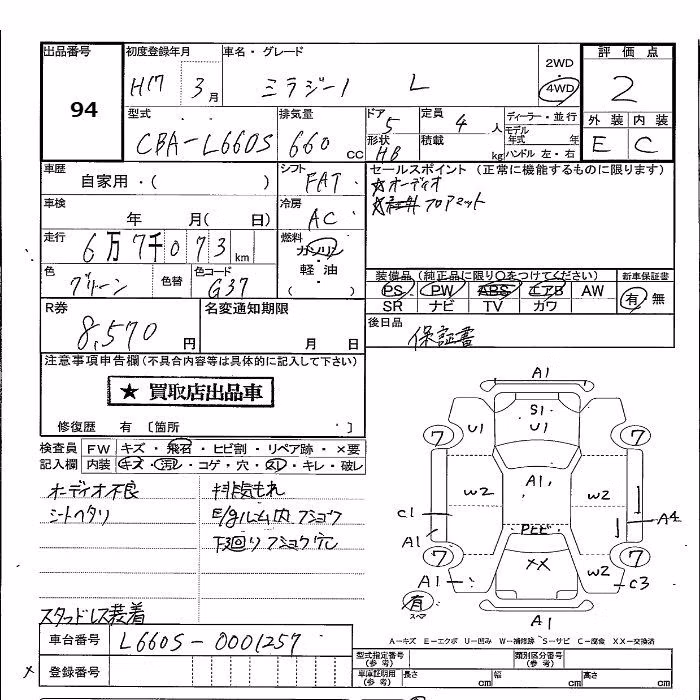 出品番号
94
初度登録年月
H17 3月
車名・グレード
ミラジーノ L
2WD
4WD
評価点
2
外装 内装
E C
型式
CBA-L660S
排気量
660 cc
ドア 5
形状 HB
定員 4 人
積載 kg
ディーラー・並行
モデル
年式 年
ハンドル 左・右
車歴
自家用・( )
シフト
FAT
セールスポイント (正常に機能するものに限ります)
☆オーディオ
フロアマット
車検
年 月( 日)
冷房
AC
走行
6万7千073km
燃料
ガソリン
・
軽油
( )
色
グリーン
色替
色コード
G37
装備品(純正品に限り○をつけてください)
新車保証書
PS PW ABS エアB AW
SR ナビ TV カワ
有 無
R券
8,570円
名変通知期限
月 日
後日品
保証書
注意事項申告欄(不具合内容等は具体的に記入して下さい)
★ 買取店出品車
修復歴 有 〔箇所 〕
検査員
記入欄
FW キズ・飛石・ヒビ割・リペア跡・×要
内装 キズ・汚レ・コゲ・穴・スレ・キレ・破レ
オーディオ不良 排気もれ
シートヘタリ E/gルーム内フショク
下廻りフショク穴
スタッドレス装着
車台番号
L660S-0001257
× 登録番号
A1
S1
U1
U1
7
7
A1
W2
W2
C1
A4
A1
Pヒビ
7
7
××
W2
A1
C3
有
スペア
A1
A-キズ E-エクボ U-凹み W-補修跡 S-サビ C-腐食 XX-交換済
型式指定番号
(参考)
類別区分番号
(参考)
車庫証明用
(参考)
長さ cm
幅 cm
高さ cm